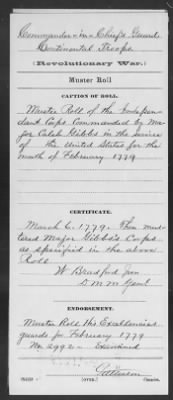 Commander-in-Chief's Guard
Continental Troops
(Revolutionary War.)
Muster Roll
CAPTION OF ROLL.
Muster Roll of the Indepen-
dant Corps Commanded by Ma-
jor Caleb Gibbs in the service
of the United States for the
month of February 1779
CERTIFICATE.
March 6. 1779. Then mus-
tered Major Gibbs's Corps
as specified in the above
Roll
W Bradford jun
D.M.M Genl
ENDORSEMENT.
Muster Roll His Excellencies
guards for February 1779
No. 2992 - Examined
(OVER.)
Copyist.